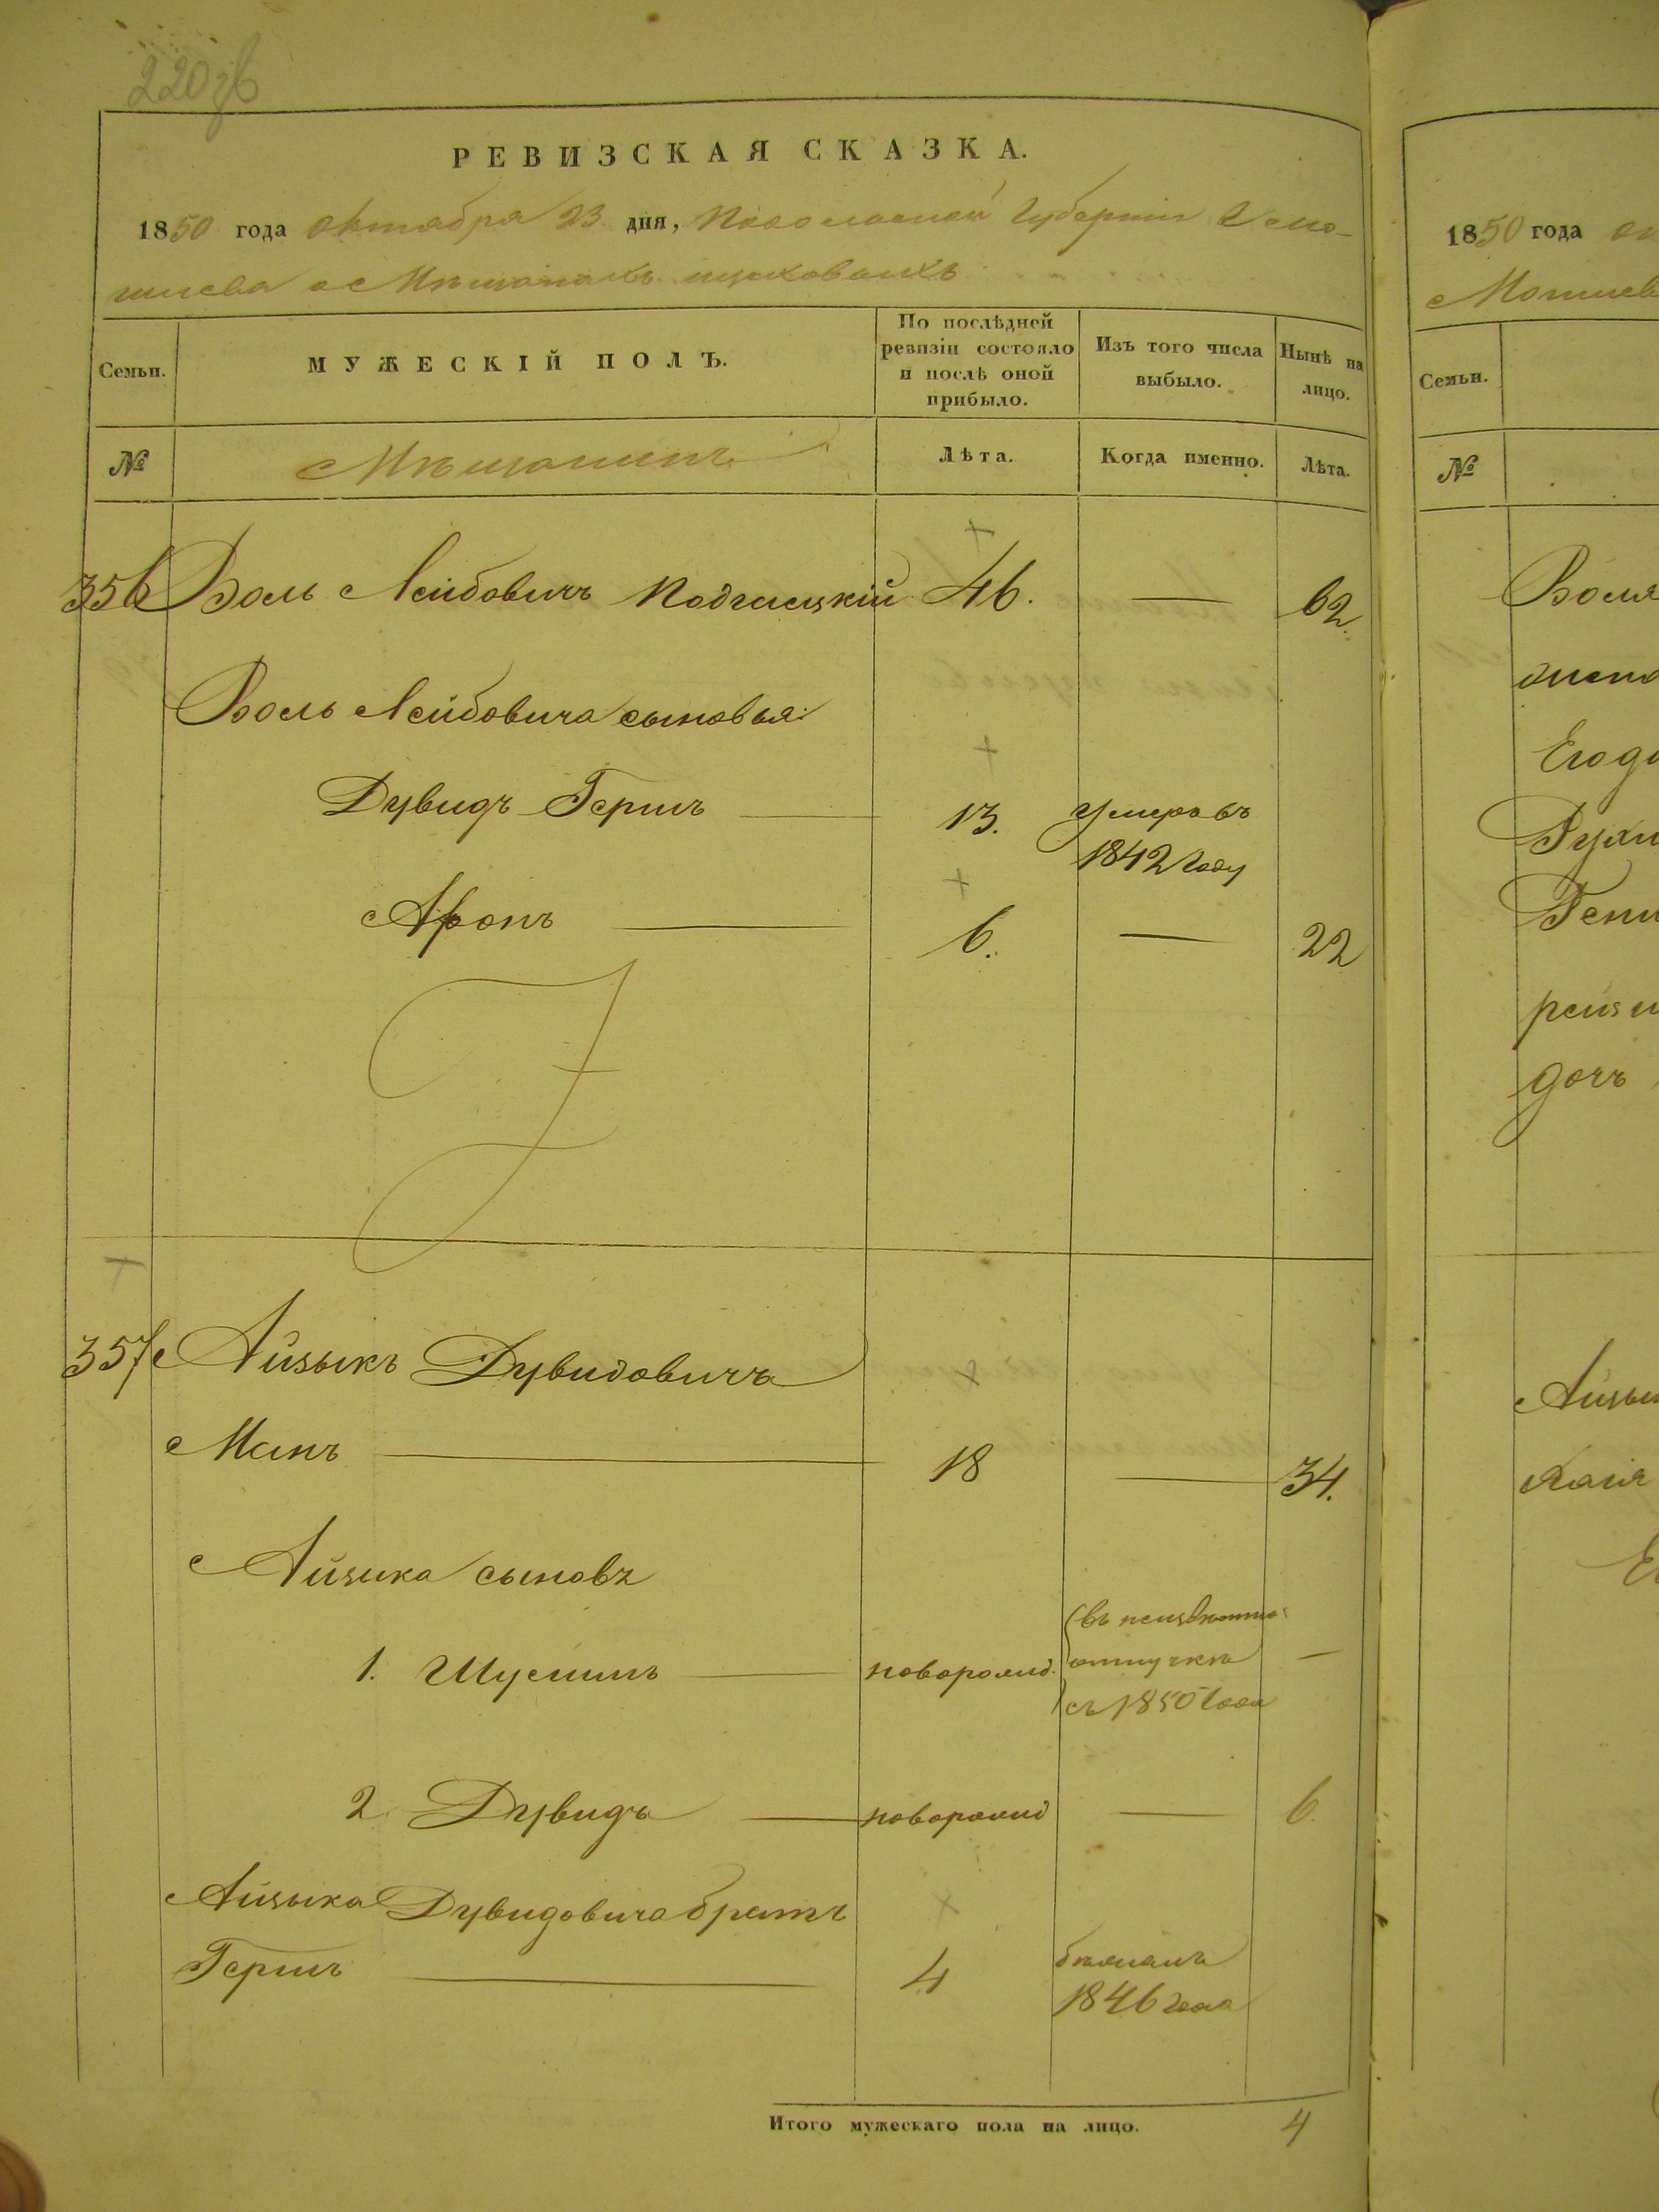 220 зв
РЕВИЗСКАЯ СКАЗКА.
1850 года октября 23 дня, Подольской Губерніи Г. Мо-
гилева о Мѣщанахъ
Семьи.
МУЖЕСКІЙ ПОЛЪ.
По послѣдней ревизіи состояло и послѣ оной прибыло.
Изъ того числа выбыло.
Нынѣ на лицо.
№
Мѣщанинъ
Лѣта.
Когда именно.
Лѣта.
356 Волъ Лейбовичъ Подгаецкій 46. — 62.
Волъ Лейбовича сыновья:
Дувидъ Гершъ — 13. Умеръ въ
1842 году
Аронъ — 6. — 22
357 Айзыкъ Дувидовичъ
Манъ — 18 — 34.
Айзика сыновъ
1. — новорожд. въ неизвѣстно
отлучкѣ
съ 1850 года —
2. Дувидъ — новорожд — 6.
Айзыка Дувидовича братъ
Гершъ — 4 бѣжалъ
1846 года
Итого мужескаго пола на лицо. 4
1850 года
Могилев
Семьи.
№
Егодо
дочъ